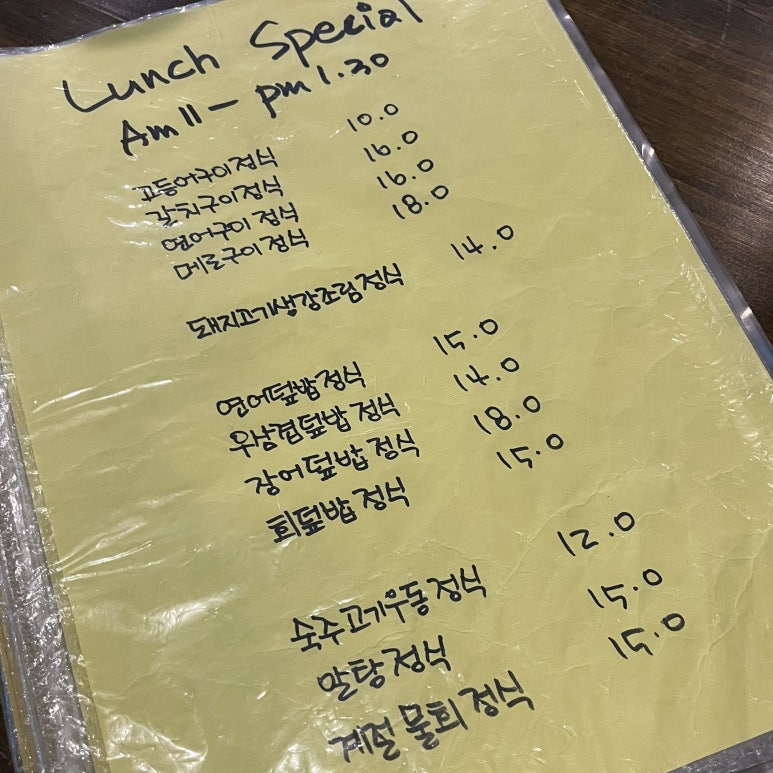 Lunch Special
Am 11 - pm 1.30
고등어구이정식 10.0
갈치구이정식 16.0
연어구이 정식 16.0
메로구이정식 18.0
돼지고기생강조림정식 14.0
연어덮밥정식 15.0
우삼겹덮밥정식 14.0
장어덮밥정식 18.0
회덮밥정식 15.0
숙주고기우동정식 12.0
알탕정식 15.0
계절물회정식 15.0